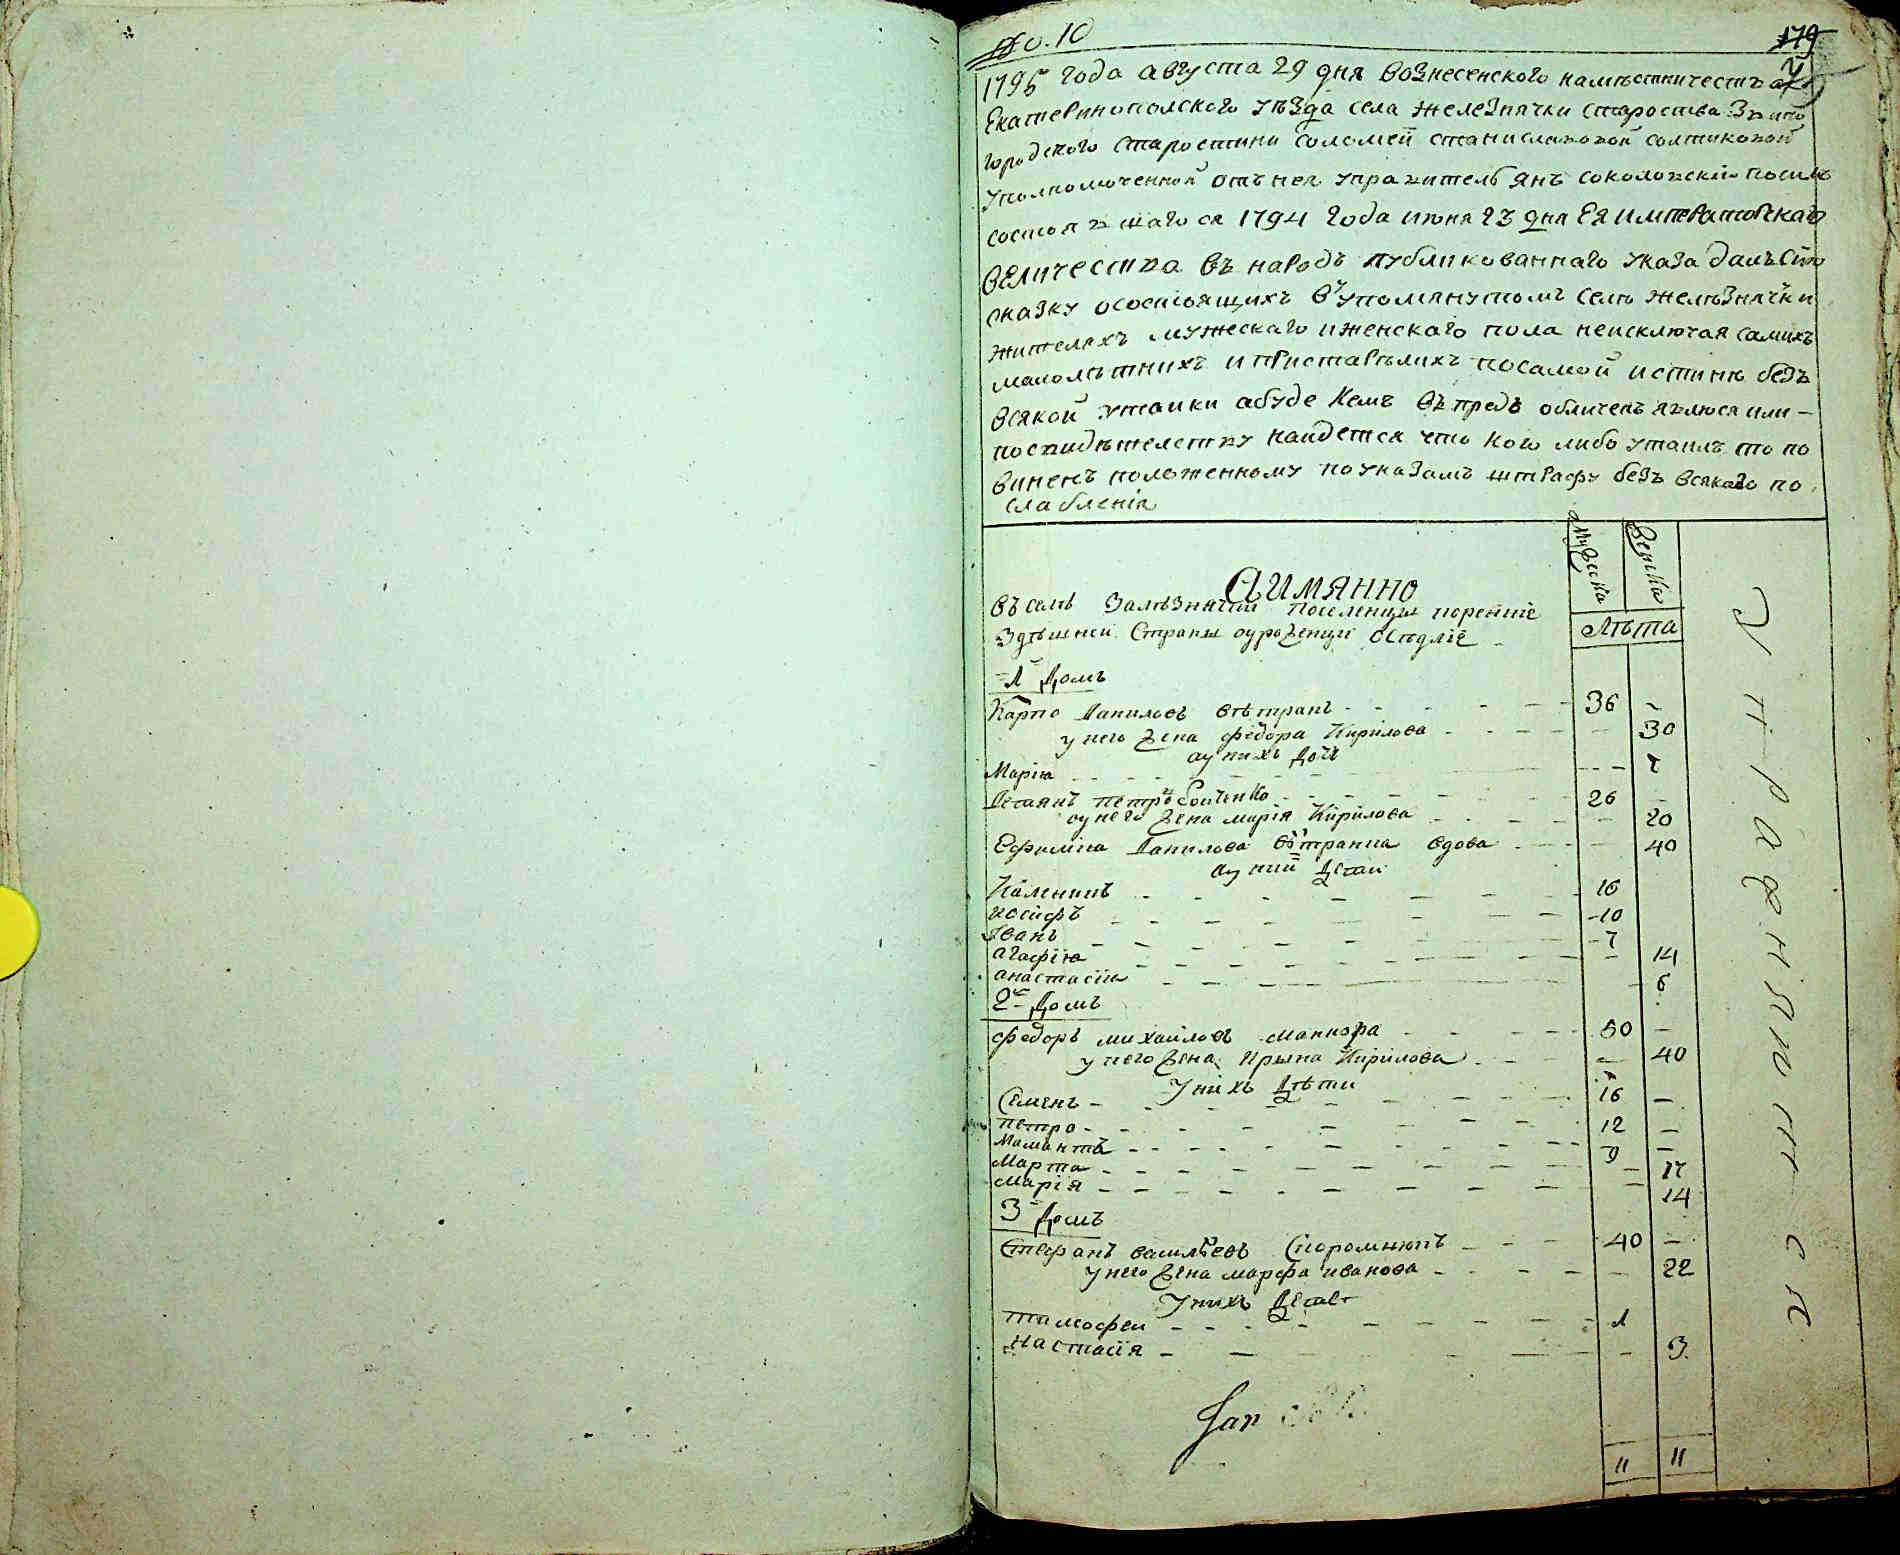 No. 10
179
1795 года августа 29 дня вознесенского намѣстничества
Екатеринополского уѣзда села Железнячки староства Звино
городского старостини Соломеи станиславовой солтиковой
уполномоченной отъ нея управитель Янъ соколовскій посилѣ
состоявшагося 1794 года июня 23 дня Ея императорскаго
величества въ народъ публикованнаго указа далъ сію
сказку осостоящихъ въ упомянутомъ селѣ желѣзнячки
жителяхъ мужескаго иженскаго пола неисключая самихъ
малолѣтнихъ ипристарѣлихъ посамой истинѣ безъ
всякой утайки абуде кемъ въпредь обличенъ явлюся или –
посвидѣтелству найдется что кого либо утаилъ то по
виненъ положенному поуказамъ штрафу безъ всякаго по
слабленія
Аимянно
мужска
женска
Лѣта
въ селѣ Залѣзнячки поселенцы коренніе
здѣшней Страны оуроженци осѣдліе
1 Домъ
Карпо Даниловъ вѣтранъ 36 –
у него жена федора Кирилова – 30
оу нихъ дочь
Марія 7
Демянъ петровъ 26 –
оу него жена марія Кирилова – 20
Ефимiа Данилова вѣтрана вдова – 40
оу ний дети
Каленикъ 16
иосифъ 10
Иванъ 7
агафія – 14
анастасія – 6
2 Домъ
федоръ михаиловъ 50 –
у него жена Ирына Кирилова – 40
У нихъ Дѣти
Семенъ 16 –
петро 12 –
Мамантъ 9 –
Марта – 17
Марія – 14
3 Домъ
Стефанъ васильевъ 40 –
у него жена марфа иванова – 22
У нихъ Дети
тимофеи 1
Настасія – 3
Jan
11 11